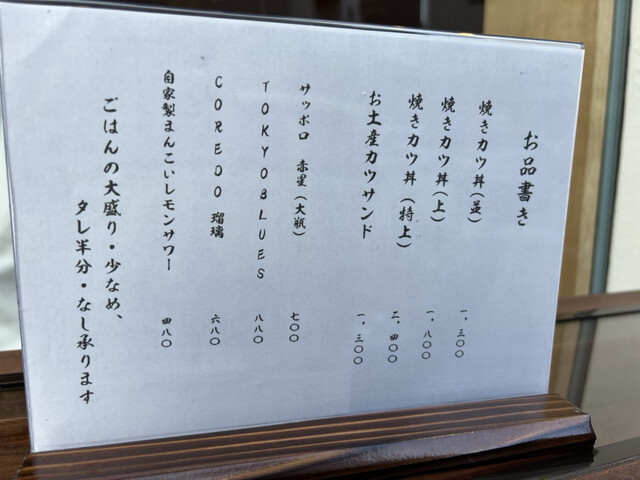 お品書き
焼きカツ丼(並) 一、三〇〇
焼きカツ丼(上) 一、八〇〇
焼きカツ丼(特上) 二、四〇〇
お土産カツサンド 一、三〇〇
サッポロ 赤星(大瓶) 七〇〇
TOKYOBLUES 八八〇
COREDO 瑠璃 六八〇
自家製まんこいレモンサワー 四八〇
ごはんの大盛り・少なめ、
タレ半分・なし承ります